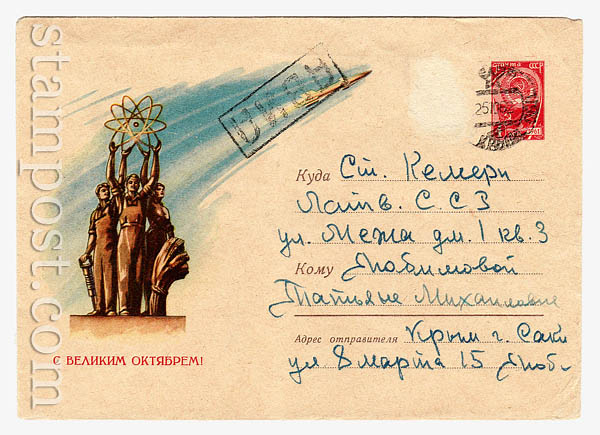 stampost.com
АВИА
ПОЧТА СССР
Куда Ст. Кемери
Латв. С.С.З
ул. Межа дм. 1 кв. 3
Кому Любимовой
Татьяне Михайловне
Адрес отправителя Крым г. Саки
ул 8 марта 15 Люб.
С ВЕЛИКИМ ОКТЯБРЕМ!